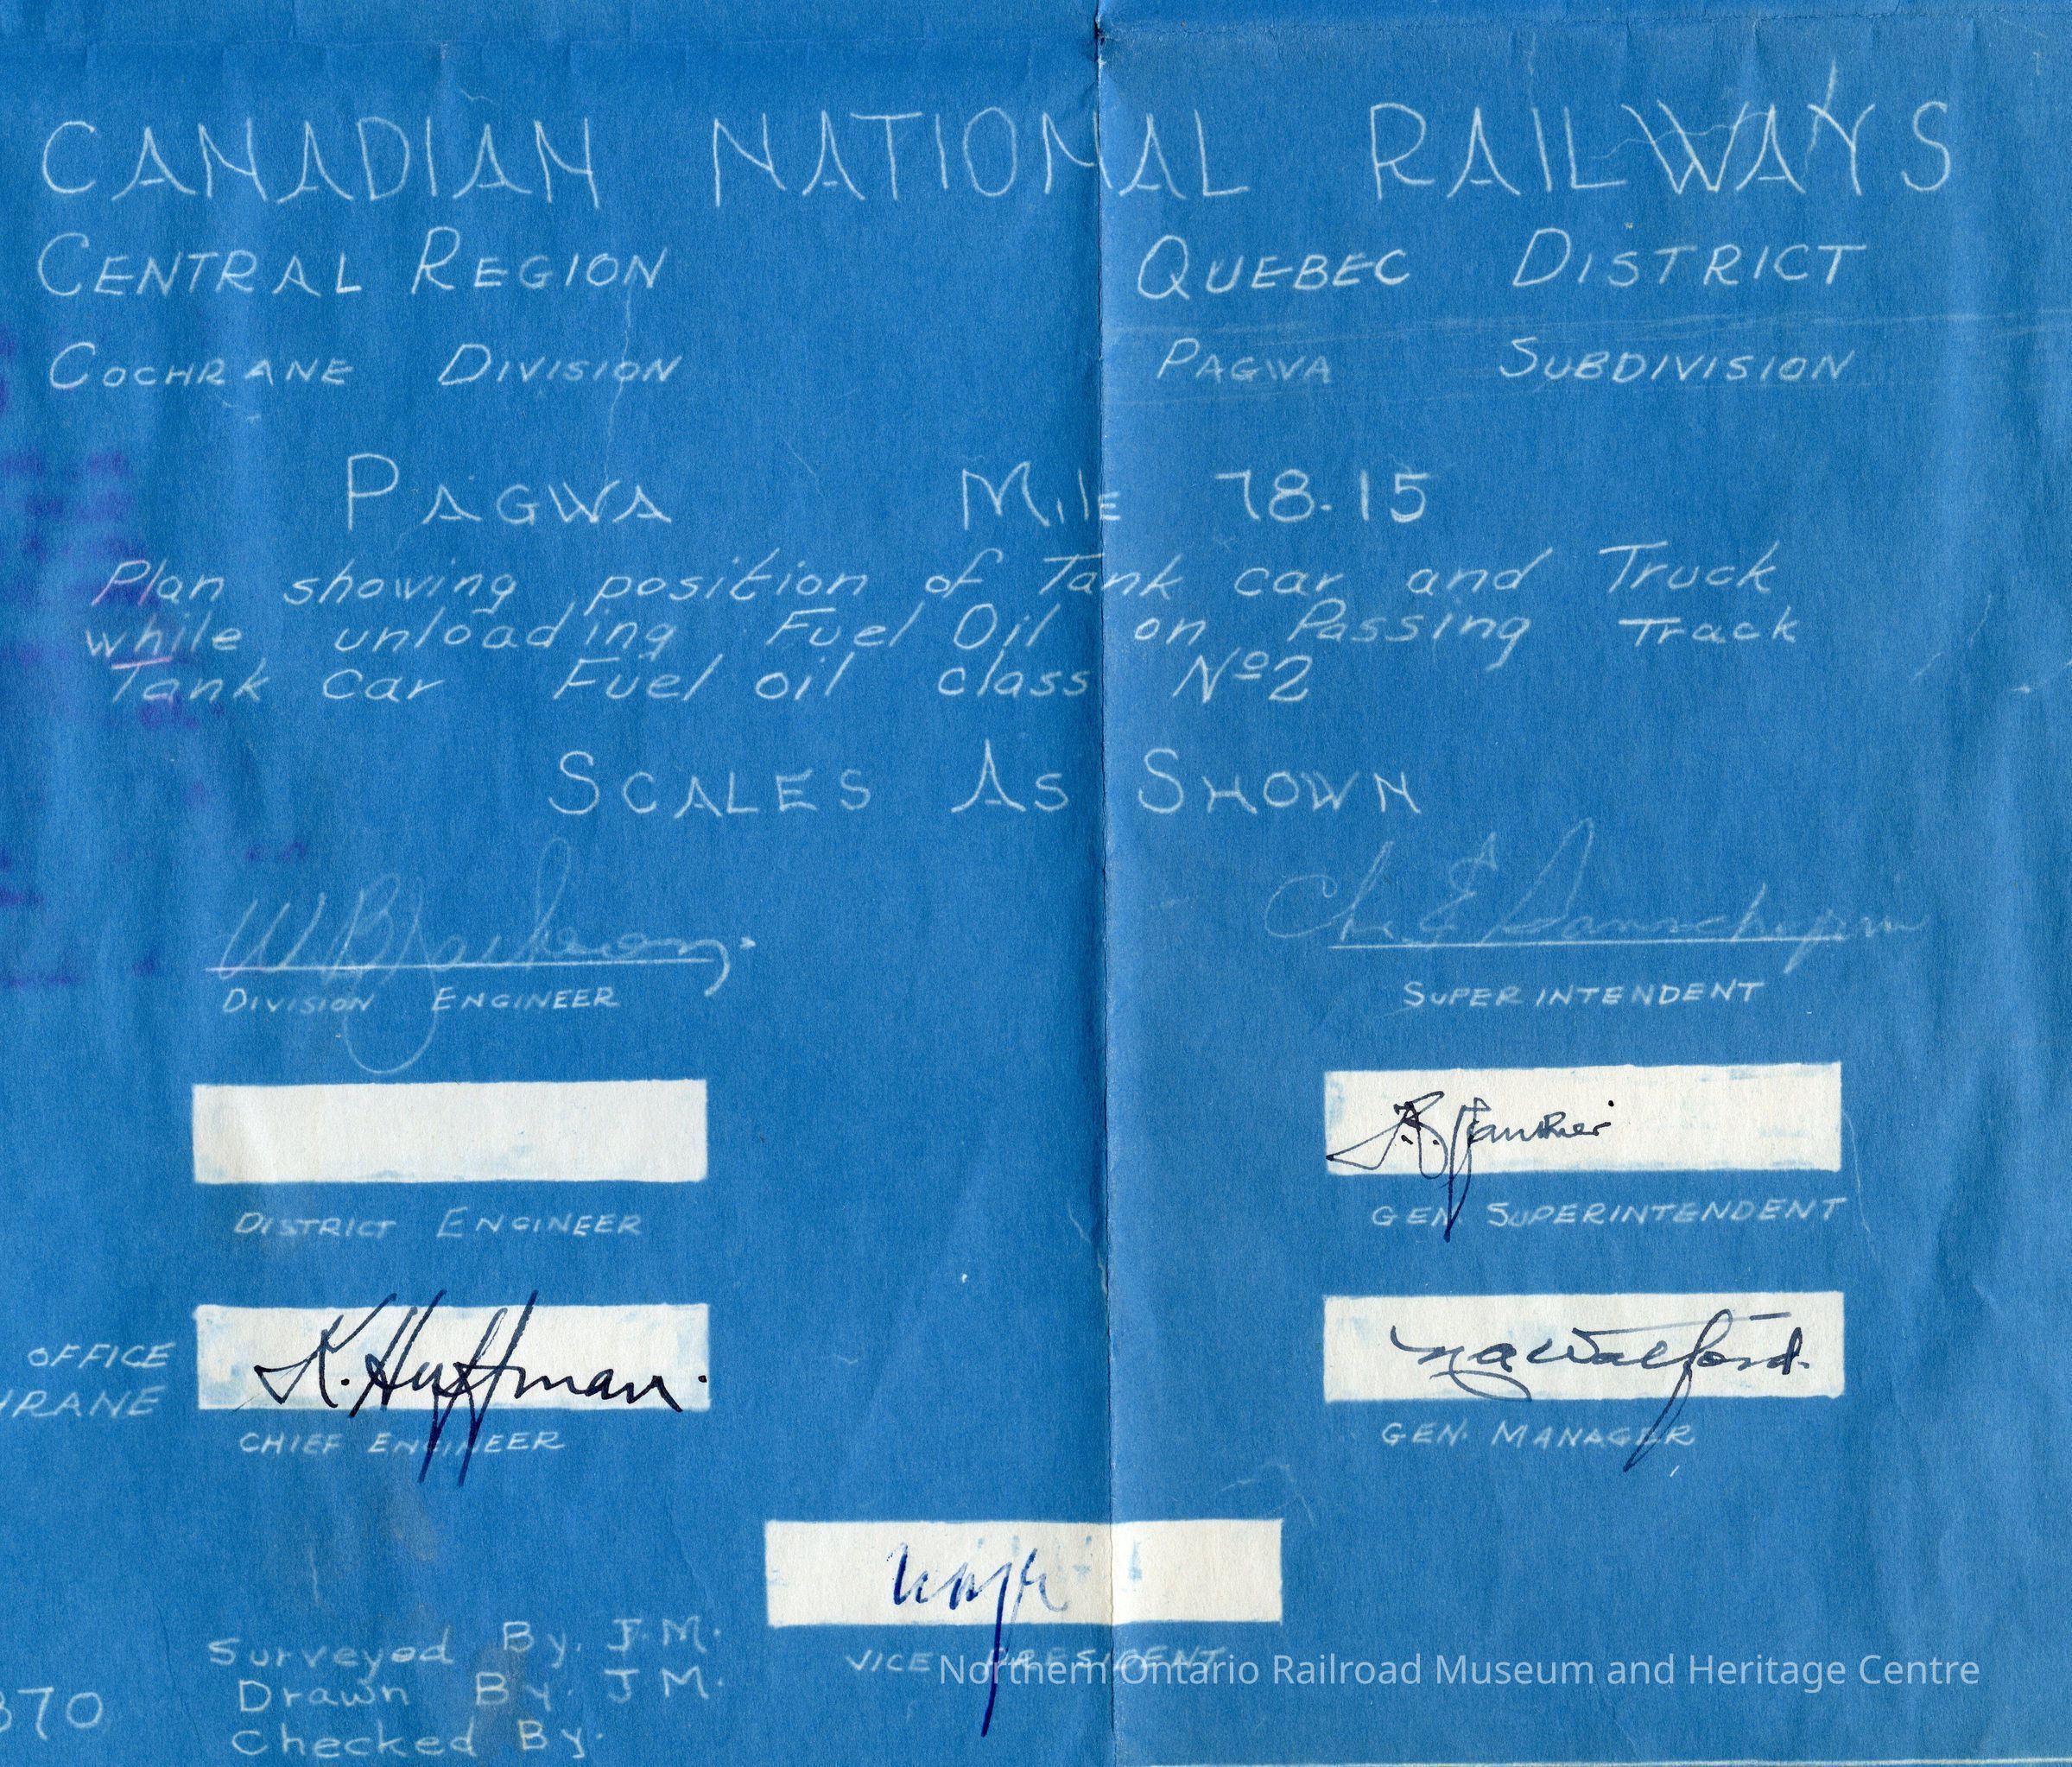 CANADIAN NATIONAL RAILWAYS
CENTRAL REGION QUEBEC DISTRICT
COCHRANE DIVISION PAGWA SUBDIVISION
PAGWA MILE 78.15
Plan showing position of Tank car and Truck
while unloading Fuel Oil on Passing Track
Tank car Fuel oil class Nº2
SCALES AS SHOWN
DIVISION ENGINEER SUPERINTENDENT
DISTRICT ENGINEER GEN SUPERINTENDENT
OFFICE K. Huffman.
CHIEF ENGINEER GEN. MANAGER
VICE PRESIDENT
Surveyed By. J.M.
Drawn By. J M.
Checked By.
370
Northern Ontario Railroad Museum and Heritage Centre